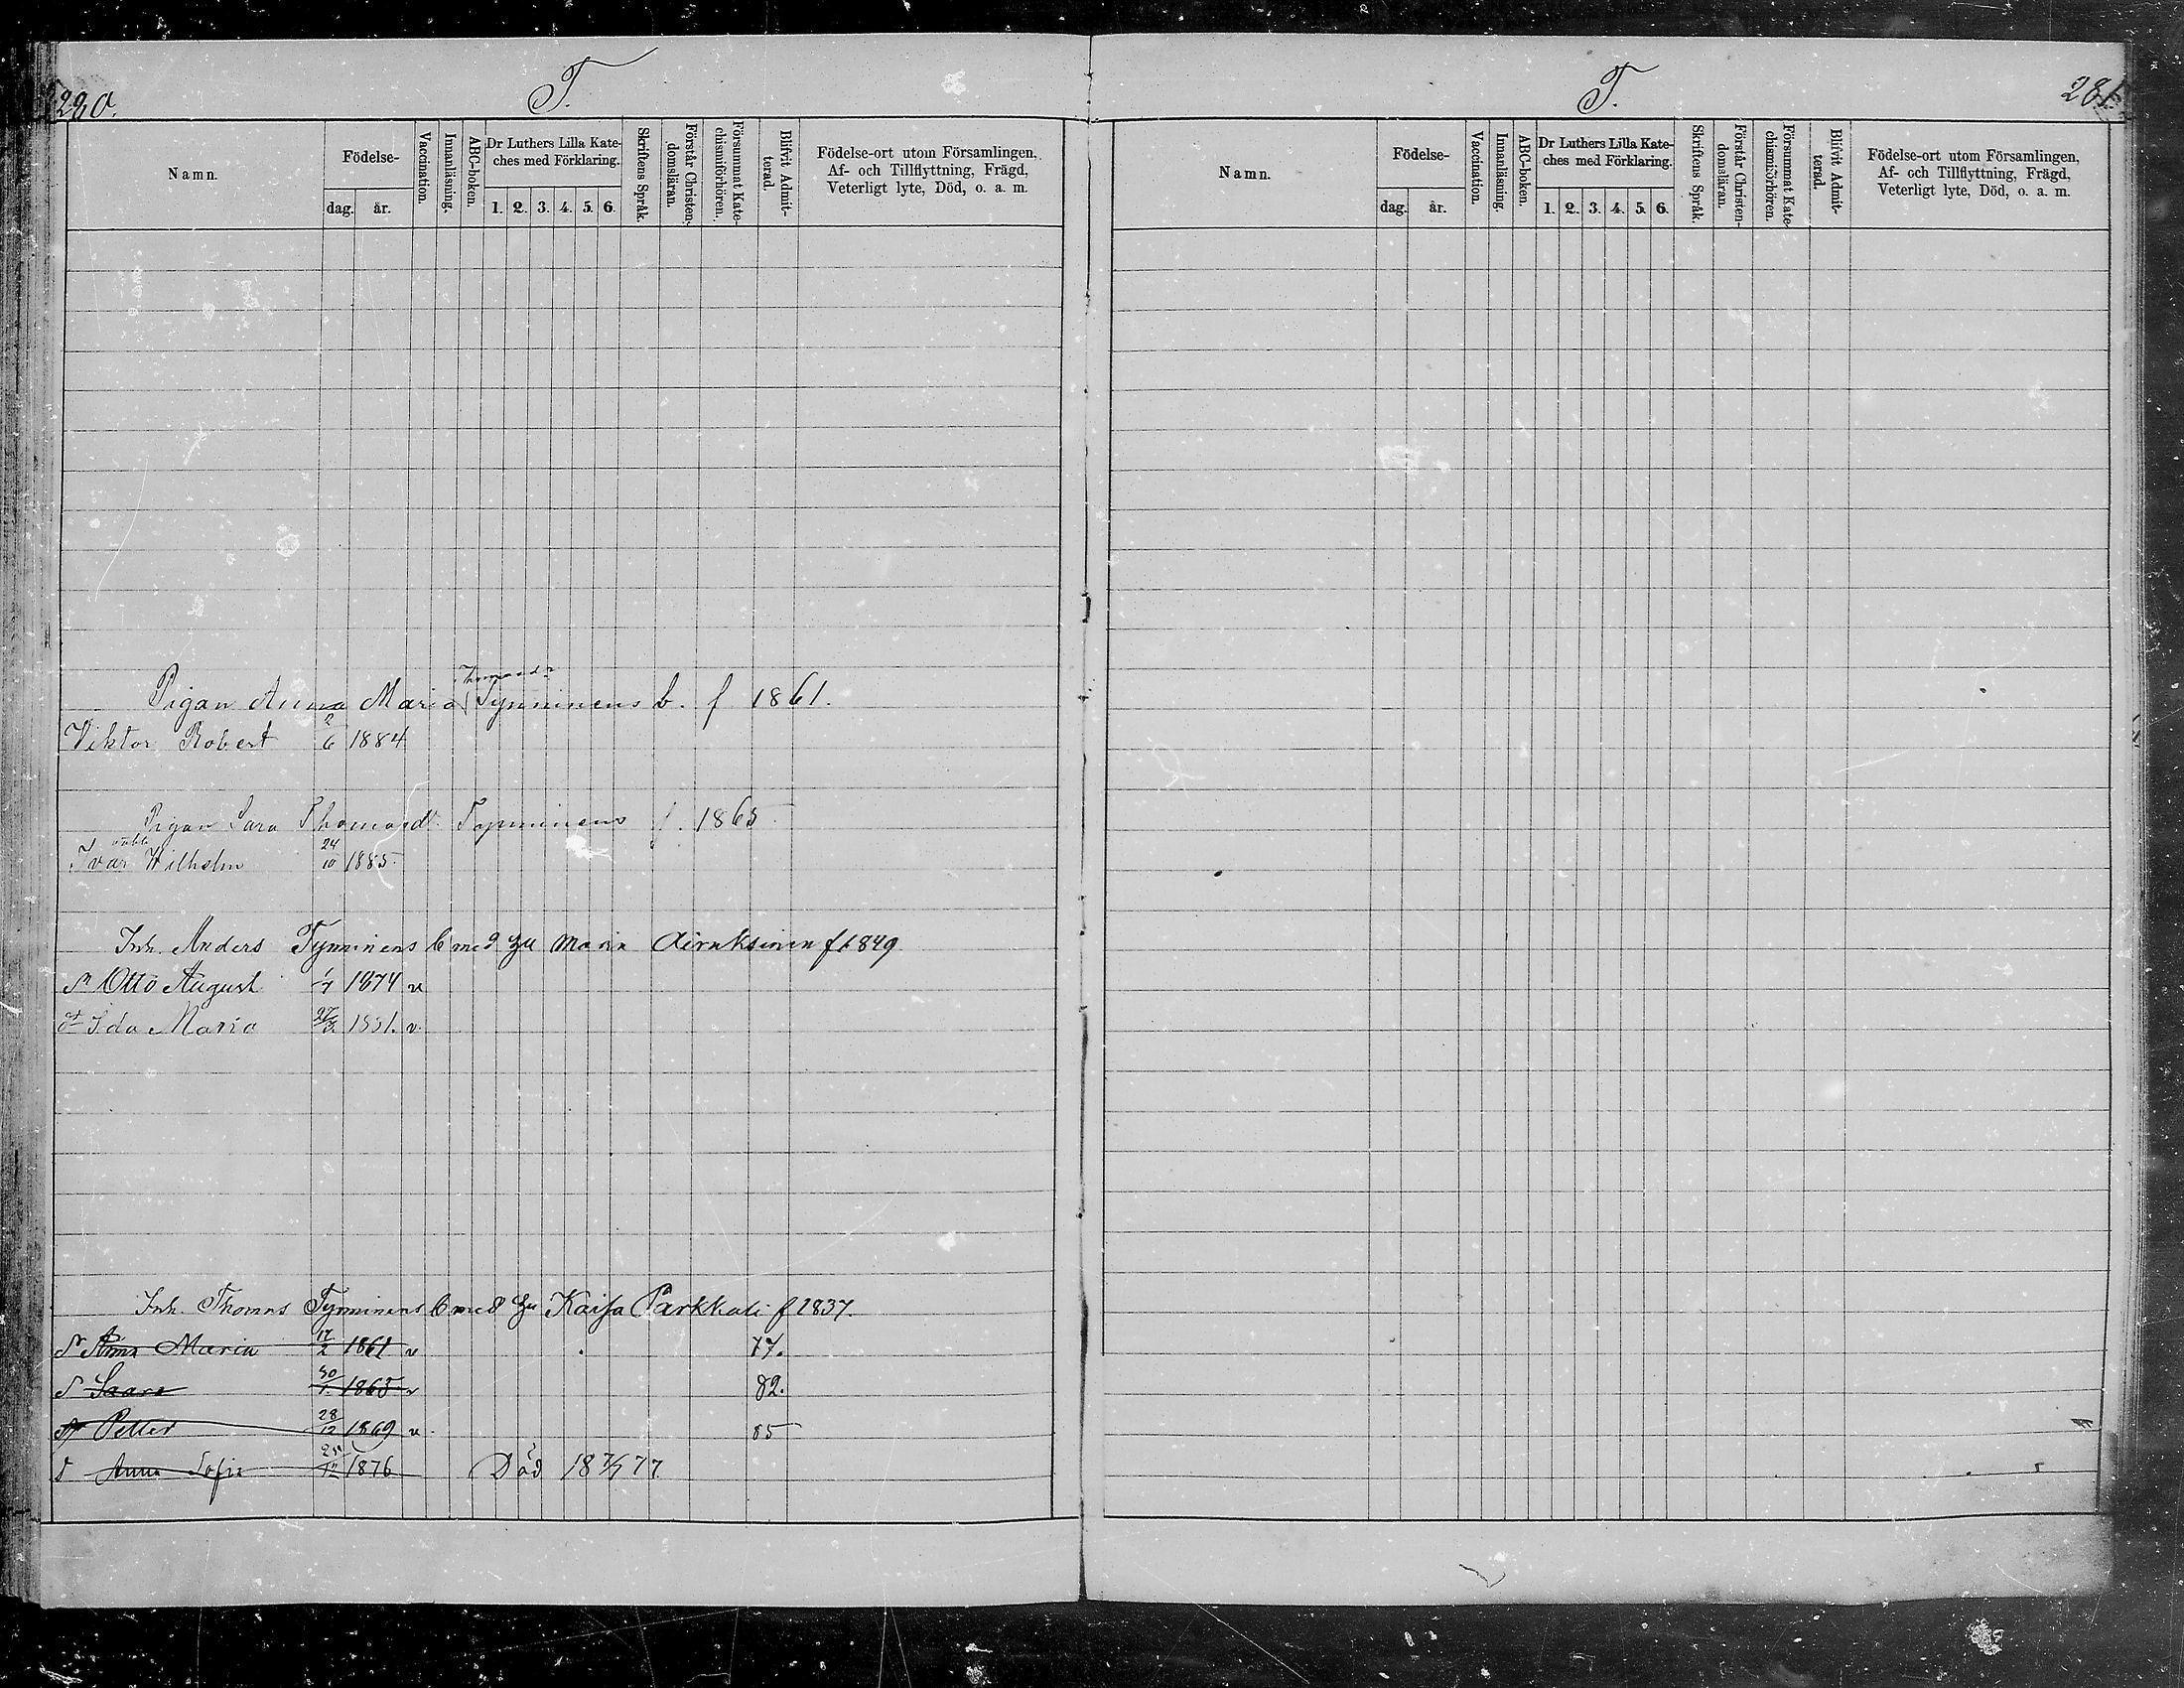 280.
T.
Namn.
Födelse-
dag.
år.
Vaccination.
Innanläsning.
ABC-boken.
Dr Luthers Lilla Kate-
ches med Förklaring.
1. 2. 3. 4. 5. 6.
Skriftens Språk.
Förstår Christen-
domsläran.
Försummat Kate-
chismiförhören.
Blifvit Admit-
terad.
Födelse-ort utom Församlingen,
Af- och Tillflyttning, Frägd,
Veterligt lyte, Död, o. a. m.
Pigan Anna Maria Thomasdr Tynninens b. f 1861.
Viktor Robert 2/6 1884
Pigan Sara Thomasdr Tynninens f. 1865
Ivar Wilhelm 24/10 1885.
Inh. Anders Tynninens b med hu Maria Airaksinen f 1849
S Otto August 1/7 1874 v
dr Ida Maria 1881. v.
Inh. Thomas Tynninens b med hu Kaisa Parkkali f 1837.
D Anna Maria 17/2 1861 v 77.
D Saara 30/1. 1865 v 82.
S Petter 28/12 1869 v. 85
D Anna Sofia 1876 Död 18 7/7 77.
T.
281
Namn.
Födelse-
dag.
år.
Vaccination.
Innanläsning.
ABC-boken.
Dr Luthers Lilla Kate-
ches med Förklaring.
1. 2. 3. 4. 5. 6.
Skriftens Språk.
Förstår Christen-
domsläran.
Försummat Kate-
chismiförhören.
Blifvit Admit-
terad.
Födelse-ort utom Församlingen,
Af- och Tillflyttning, Frägd,
Veterligt lyte, Död, o. a. m.